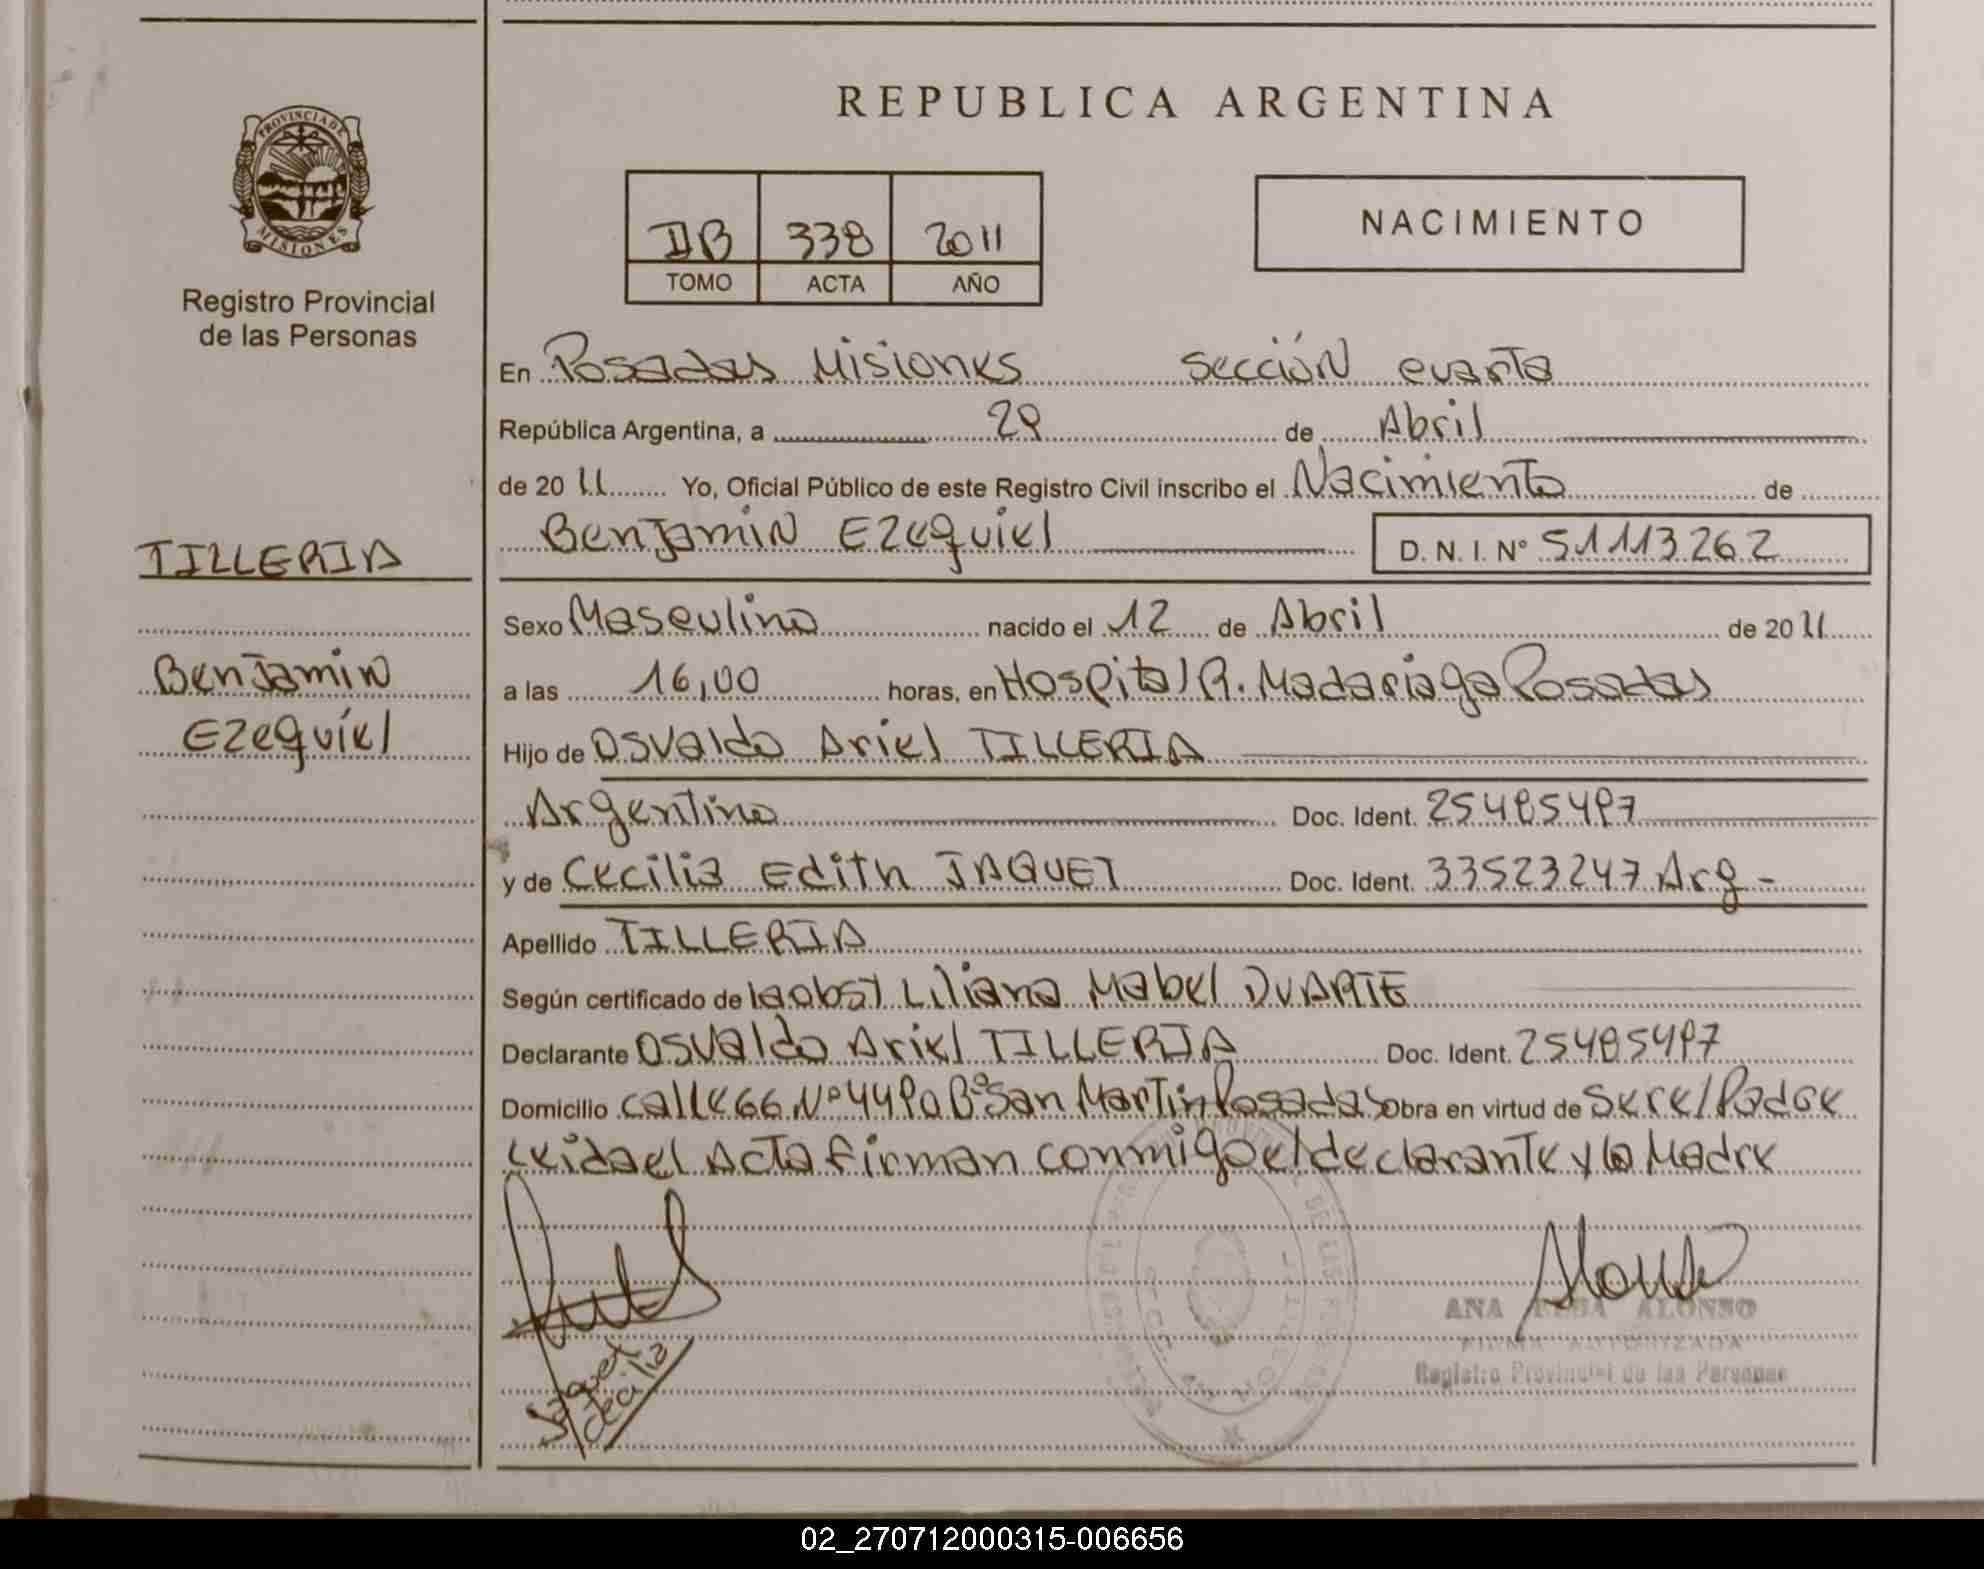 REPUBLICA ARGENTINA
PROVINCIA DE MISIONES
Registro Provincial
de las Personas
IIB 338 2011
TOMO ACTA AÑO
NACIMIENTO
En Posadas Misiones Sección cuarta
República Argentina, a 29 de Abril
de 2011 Yo, Oficial Público de este Registro Civil inscribo el Nacimiento de
Benjamin Ezequiel D. N. I. Nº 51113262
TILLERIA
Benjamin
Ezequiel
Sexo Masculino nacido el 12 de Abril de 2011
a las 16,00 horas, en Hospital R. Madariaga Posadas
Hijo de Osvaldo Ariel TILLERIA
Argentino Doc. Ident. 25485497
y de Cecilia Edith JAQUET Doc. Ident. 33523247 Arg-
Apellido TILLERIA
Según certificado de la obst Liliana Mabel DUARTE
Declarante Osvaldo Ariel TILLERIA Doc. Ident. 25485497
Domicilio calle 66 Nº 4490 Bº San Martin Posadas Obra en virtud de Ser el Padre
Leida el Acta firman conmigo el declarante y la Madre
Jaquet
Cecilia
ANA ALONSO
FIRMA AUTORIZADA
Registro Provincial de las Personas
02_270712000315-006656